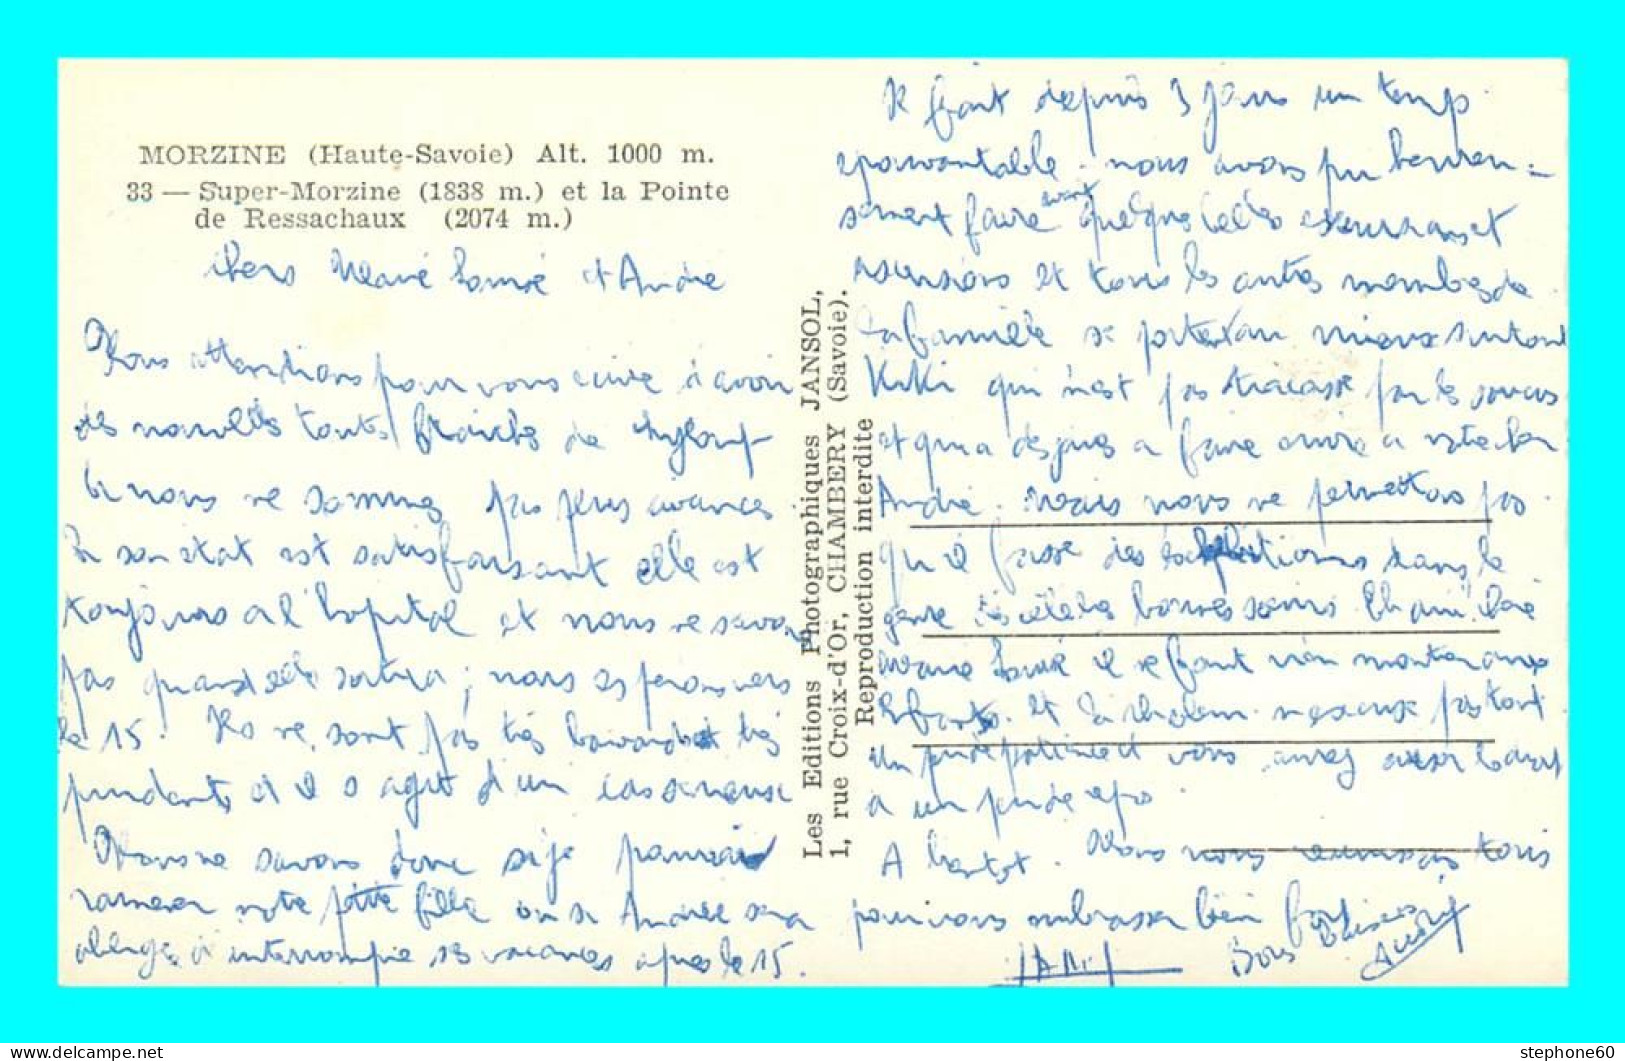 MORZINE (Haute-Savoie) Alt. 1000 m.
33 — Super-Morzine (1838 m.) et la Pointe
de Ressachaux (2074 m.)
chers et André
Nous attendions pour vous écrire d'avoir
des nouvelles toutes fraîches de
nous ne sommes pas plus avancés
son état est satisfaisant elle est
toujours a l'hopital et nous ne savons
pas quand elle sortira ; nous espérons vers
le 15. Ils ne sont pas très bavards et très
prudents et il s'agit d'un cas sérieux
Nous ne savons donc si je pourrai
ramener votre petite fille ou si Andrée sera
obligé d'interrompre ses vacances après le 15.
Les Editions Photographiques JANSOL,
1, rue Croix-d'Or, CHAMBERY (Savoie).
Reproduction interdite
Il fait depuis 3 jours un temps
epouvantable. nous avons pu heureu=
sement faire avant quelques belles excursions et
ascensions et tous les autres membres de
la famille se portent au mieux surtout
KiKi qui n'est pas tracassé par les soucis
et qui a des joues a faire envie a votre
André. Mais nous ne permettons pas
qu'il fasse des dans le
genre
il ne faut rien montrer aux
Enfants. Et
un peu de patience et vous aurez aussi le droit
a un peu de repos.
A bientot. Nous nous réunissons tous
pour vous embrasser bien fort
Bons Baisers
stephone60